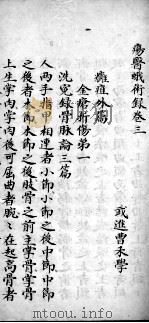 瘍醫蛾術録卷三
或進曹禾學
癰疽外篇
金瘡折傷第一
洗冤録骨脉論三篇
人兩手指甲相連者小節小節之後中節中節
之後者本節本節之後肢骨之前生掌骨掌骨
上生掌肉掌肉後可屈曲者腕〻左起高骨者
http://www.mtoou.info/